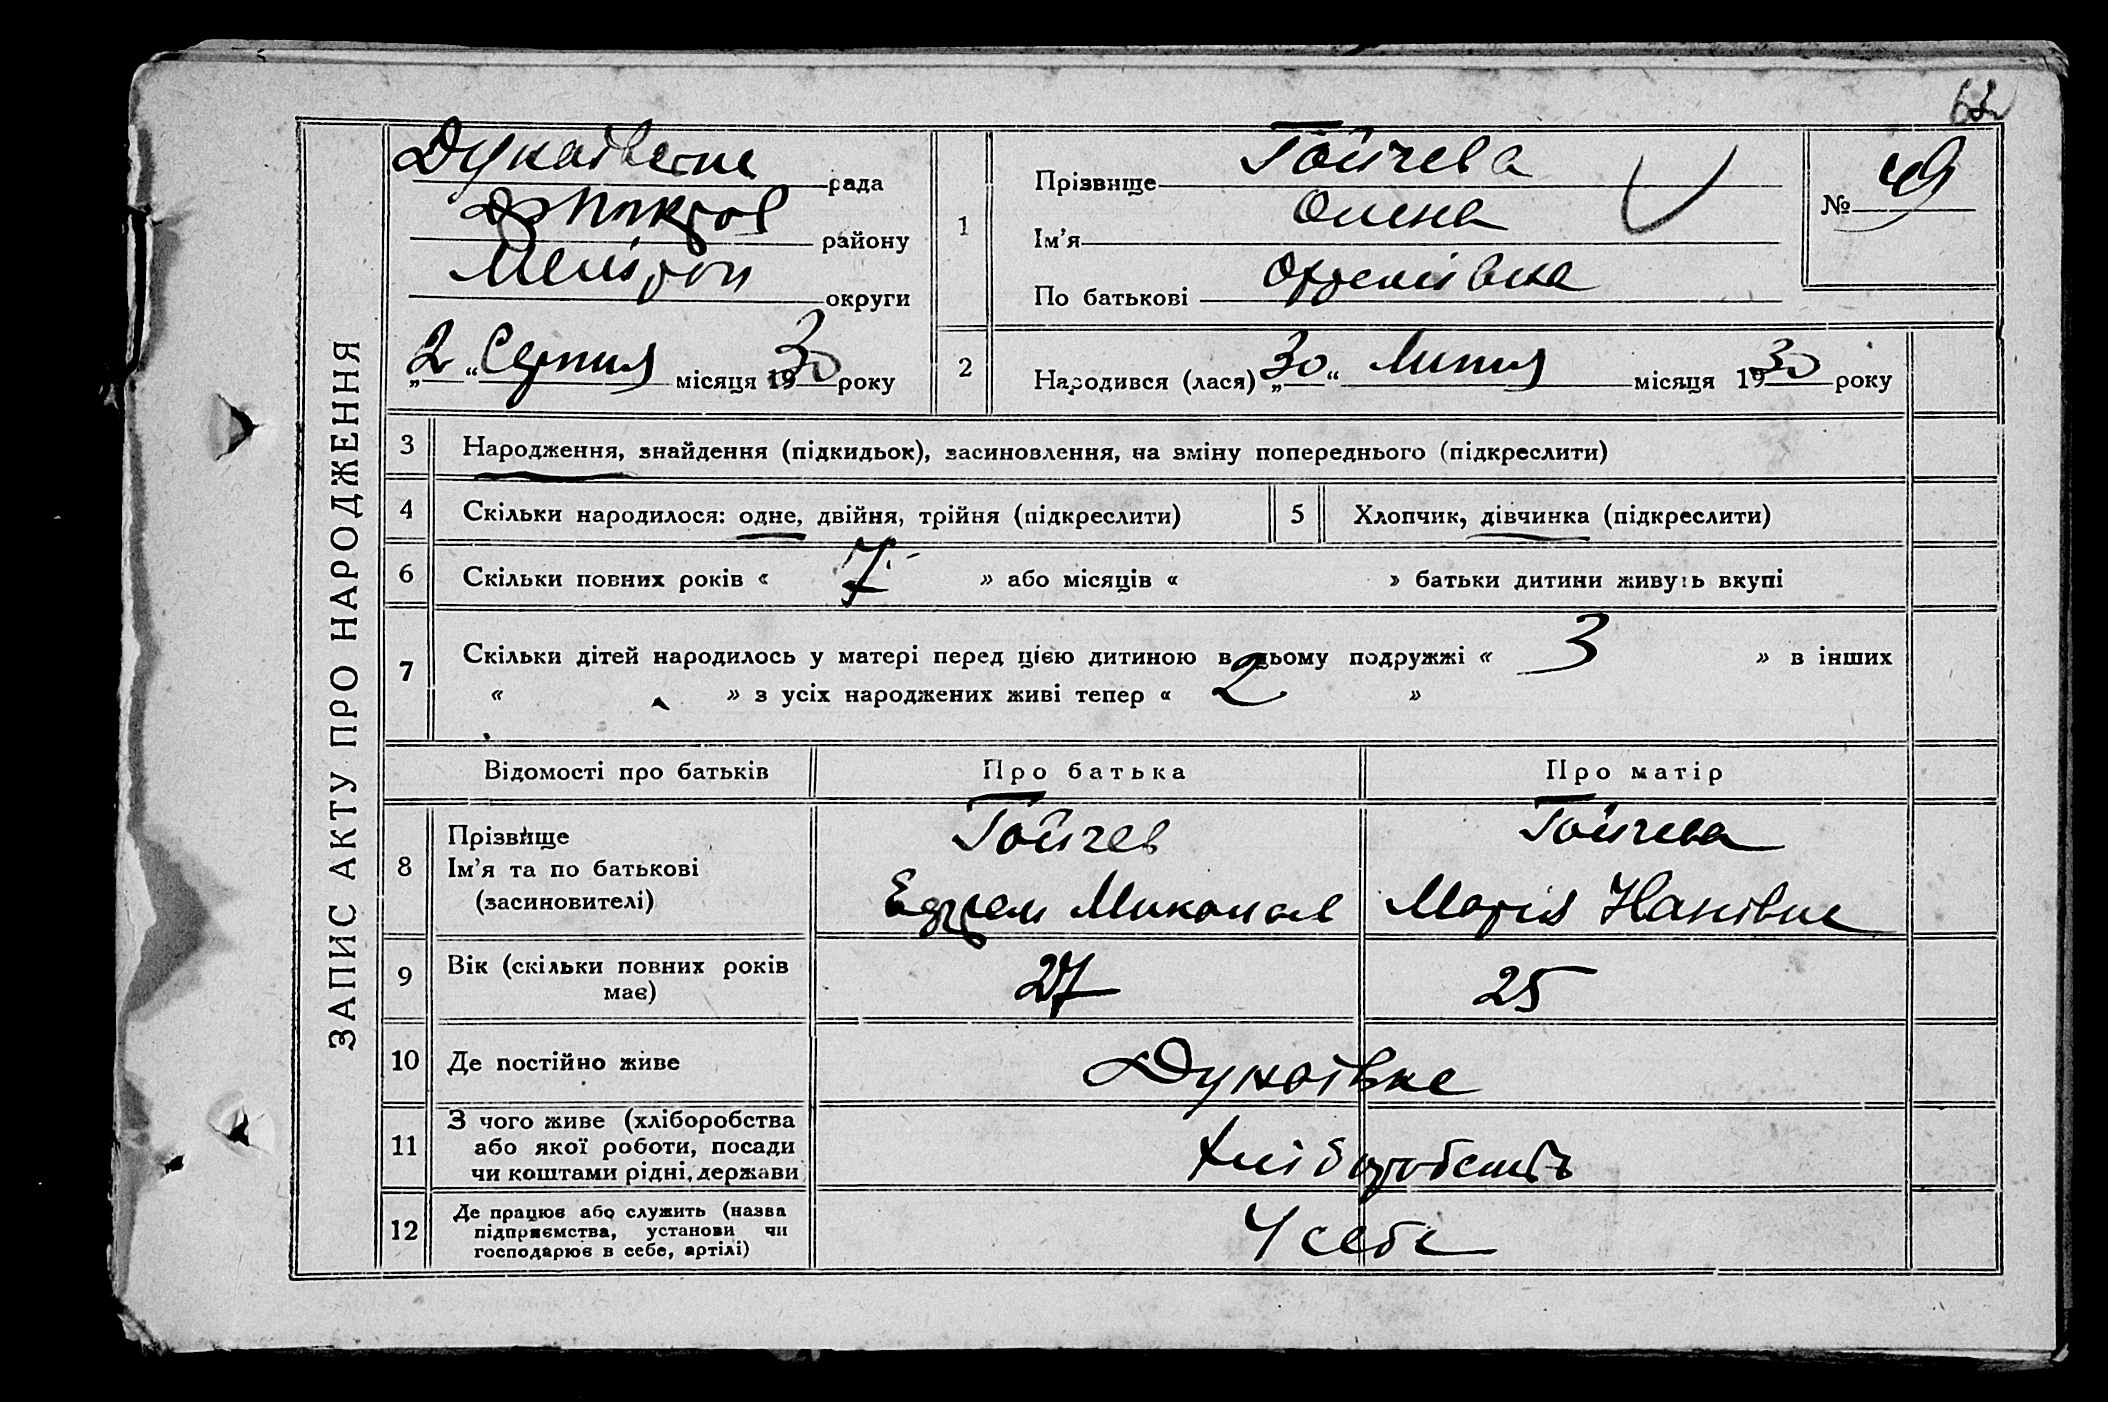 62
ЗАПИС АКТУ ПРО НАРОДЖЕННЯ
Дунаївська рада
району
Меліт округи
„2“ Серпня місяця 1930 року
1
Прізвище Гойчева
Ім'я Олена
По батькові
№ 49
2
Народився (лася) „30“ Липня місяця 1930 року
3 Народження, знайдення (підкидьок), засиновлення, на зміну попереднього (підкреслити)
4 Скільки народилося: одне, двійня, трійня (підкреслити)
5 Хлопчик, дівчинка (підкреслити)
6 Скільки повних років « 7 » або місяців « » батьки дитини живуть вкупі
7 Скільки дітей народилось у матері перед цією дитиною в цьому подружжі « 3 » в інших
« » з усіх народжених живі тепер « 2 »
Відомості про батьків Про батька Про матір
8 Прізвище
Ім'я та по батькові
(засиновителі)
Гойчев
Микола
Гойчева
Марія Іванівна
9 Вік (скільки повних років
має)
27
25
10 Де постійно живе
Дунаївка
11 З чого живе (хліборобства
або якої роботи, посади
чи коштами рідні, держави
Хліборобств
12 Де працює або служить (назва
підприємства, установи чи
господарює в себе, артілі)
У себе